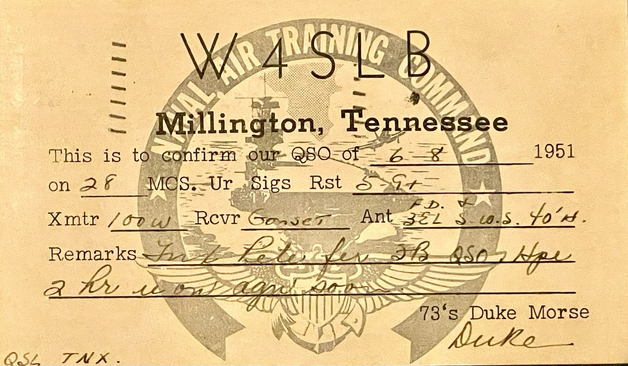 W4SLB
NAVAL AIR TRAINING COMMAND
Millington, Tennessee
This is to confirm our QSO of 6-8 1951
on 28 MCS. Ur Sigs Rst 5-9+
Xmtr 100w Rcvr Gonset Ant F.D. & 3EL S.W.S. 40'H.
Remarks Pete fer QSO, Hpe
2 hr u on agn soon.
73's Duke Morse
Duke
QSL TNX.